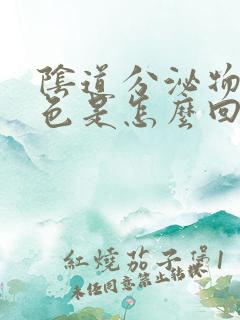 陰道分泌物
色是怎麼回
紅燒茄子煲1
未经同意禁止转载